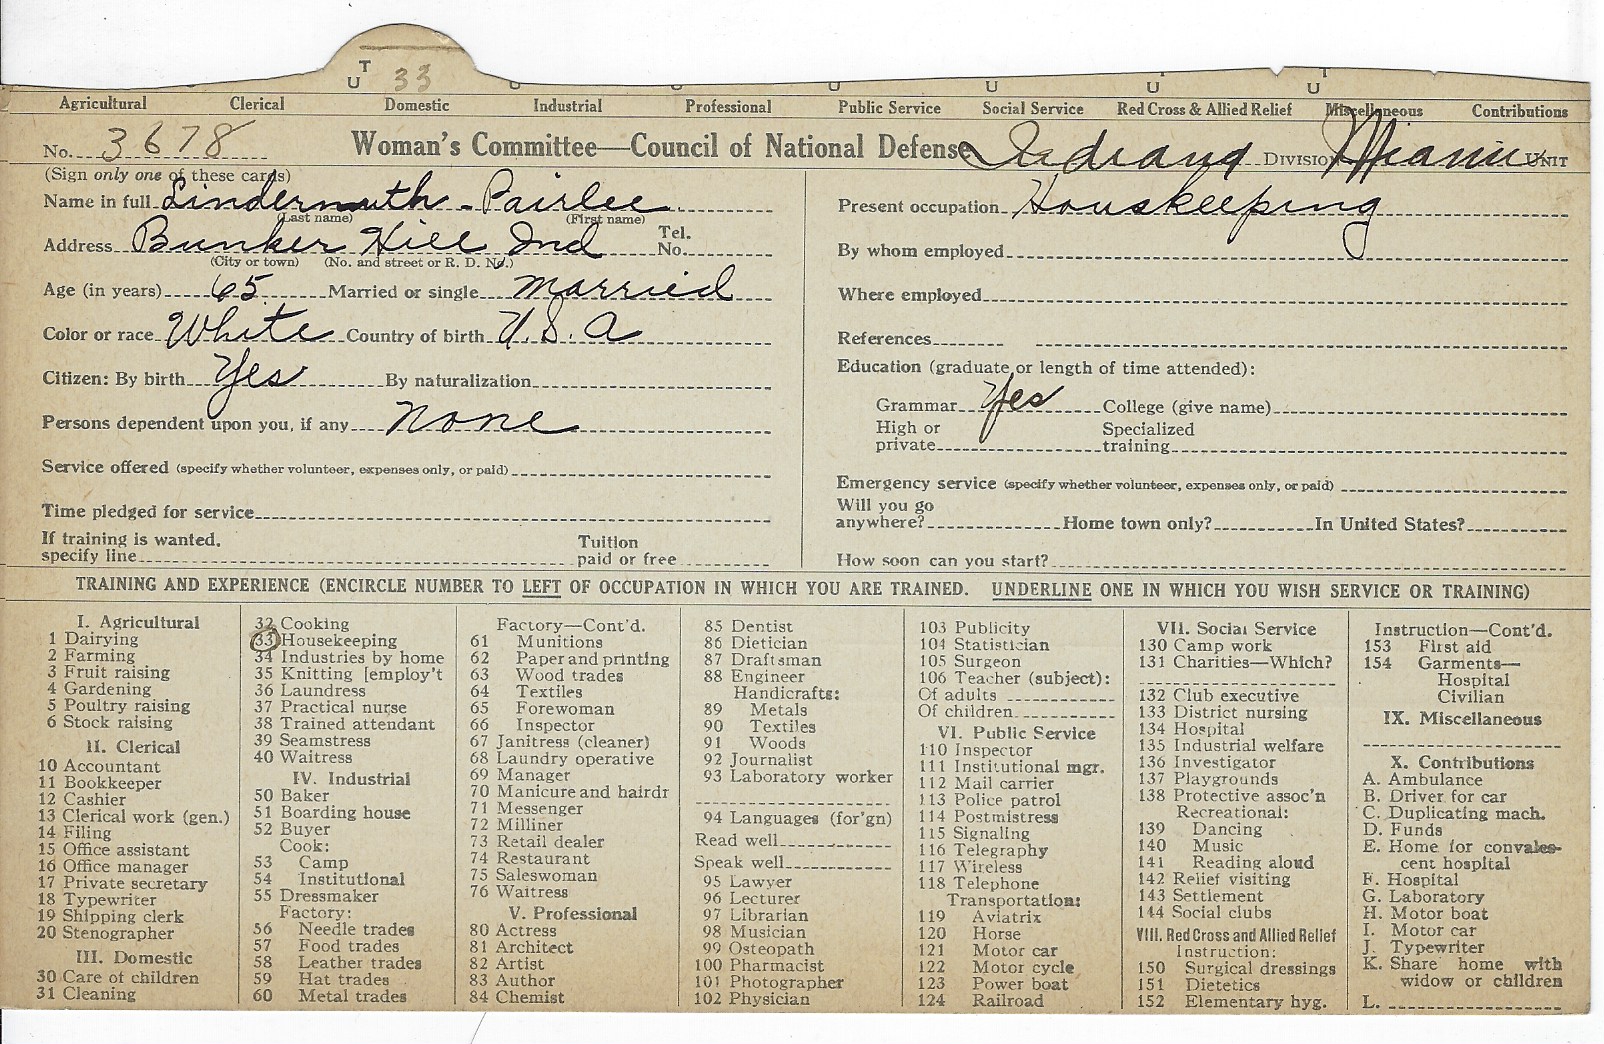 T
U 33 U U U U U U U
Agricultural Clerical Domestic Industrial Professional Public Service Social Service Red Cross & Allied Relief Miscellaneous Contributions
No. 3678 Woman's Committee—Council of National Defense Indiana Division Miami Unit
(Sign only one of these cards)
Name in full Lindermuth - Pairlee
(Last name) (First name)
Address Bunker Hill Ind Tel. No.
(City or town) (No. and street or R. D. No.)
Age (in years) 65 Married or single married
Color or race White Country of birth U.S.A
Citizen: By birth Yes By naturalization
Persons dependent upon you, if any none
Service offered (specify whether volunteer, expenses only, or paid)
Time pledged for service
If training is wanted, specify line Tuition paid or free
Present occupation Houskeeping
By whom employed
Where employed
References
Education (graduate or length of time attended):
Grammar Yes College (give name)
High or private Specialized training
Emergency service (specify whether volunteer, expenses only, or paid)
Will you go anywhere? Home town only? In United States?
How soon can you start?
TRAINING AND EXPERIENCE (ENCIRCLE NUMBER TO LEFT OF OCCUPATION IN WHICH YOU ARE TRAINED. UNDERLINE ONE IN WHICH YOU WISH SERVICE OR TRAINING)
I. Agricultural
1 Dairying
2 Farming
3 Fruit raising
4 Gardening
5 Poultry raising
6 Stock raising
II. Clerical
10 Accountant
11 Bookkeeper
12 Cashier
13 Clerical work (gen.)
14 Filing
15 Office assistant
16 Office manager
17 Private secretary
18 Typewriter
19 Shipping clerk
20 Stenographer
III. Domestic
30 Care of children
31 Cleaning
32 Cooking
33 Housekeeping
34 Industries by home
35 Knitting [employ't
36 Laundress
37 Practical nurse
38 Trained attendant
39 Seamstress
40 Waitress
IV. Industrial
50 Baker
51 Boarding house
52 Buyer
Cook:
53 Camp
54 Institutional
55 Dressmaker
Factory:
56 Needle trades
57 Food trades
58 Leather trades
59 Hat trades
60 Metal trades
Factory—Cont'd.
61 Munitions
62 Paper and printing
63 Wood trades
64 Textiles
65 Forewoman
66 Inspector
67 Janitress (cleaner)
68 Laundry operative
69 Manager
70 Manicure and hairdr
71 Messenger
72 Milliner
73 Retail dealer
74 Restaurant
75 Saleswoman
76 Waitress
V. Professional
80 Actress
81 Architect
82 Artist
83 Author
84 Chemist
85 Dentist
86 Dietician
87 Draftsman
88 Engineer
Handicrafts:
89 Metals
90 Textiles
91 Woods
92 Journalist
93 Laboratory worker
94 Languages (for'gn)
Read well
Speak well
95 Lawyer
96 Lecturer
97 Librarian
98 Musician
99 Osteopath
100 Pharmacist
101 Photographer
102 Physician
103 Publicity
104 Statistician
105 Surgeon
106 Teacher (subject):
Of adults
Of children
VI. Public Service
110 Inspector
111 Institutional mgr.
112 Mail carrier
113 Police patrol
114 Postmistress
115 Signaling
116 Telegraphy
117 Wireless
118 Telephone
Transportation:
119 Aviatrix
120 Horse
121 Motor car
122 Motor cycle
123 Power boat
124 Railroad
VII. Social Service
130 Camp work
131 Charities—Which?
132 Club executive
133 District nursing
134 Hospital
135 Industrial welfare
136 Investigator
137 Playgrounds
138 Protective assoc'n
Recreational:
139 Dancing
140 Music
141 Reading aloud
142 Relief visiting
143 Settlement
144 Social clubs
VIII. Red Cross and Allied Relief
Instruction:
150 Surgical dressings
151 Dietetics
152 Elementary hyg.
Instruction—Cont'd.
153 First aid
154 Garments—
Hospital
Civilian
IX. Miscellaneous
X. Contributions
A. Ambulance
B. Driver for car
C. Duplicating mach.
D. Funds
E. Home for convales-
cent hospital
F. Hospital
G. Laboratory
H. Motor boat
I. Motor car
J. Typewriter
K. Share home with
widow or children
L.